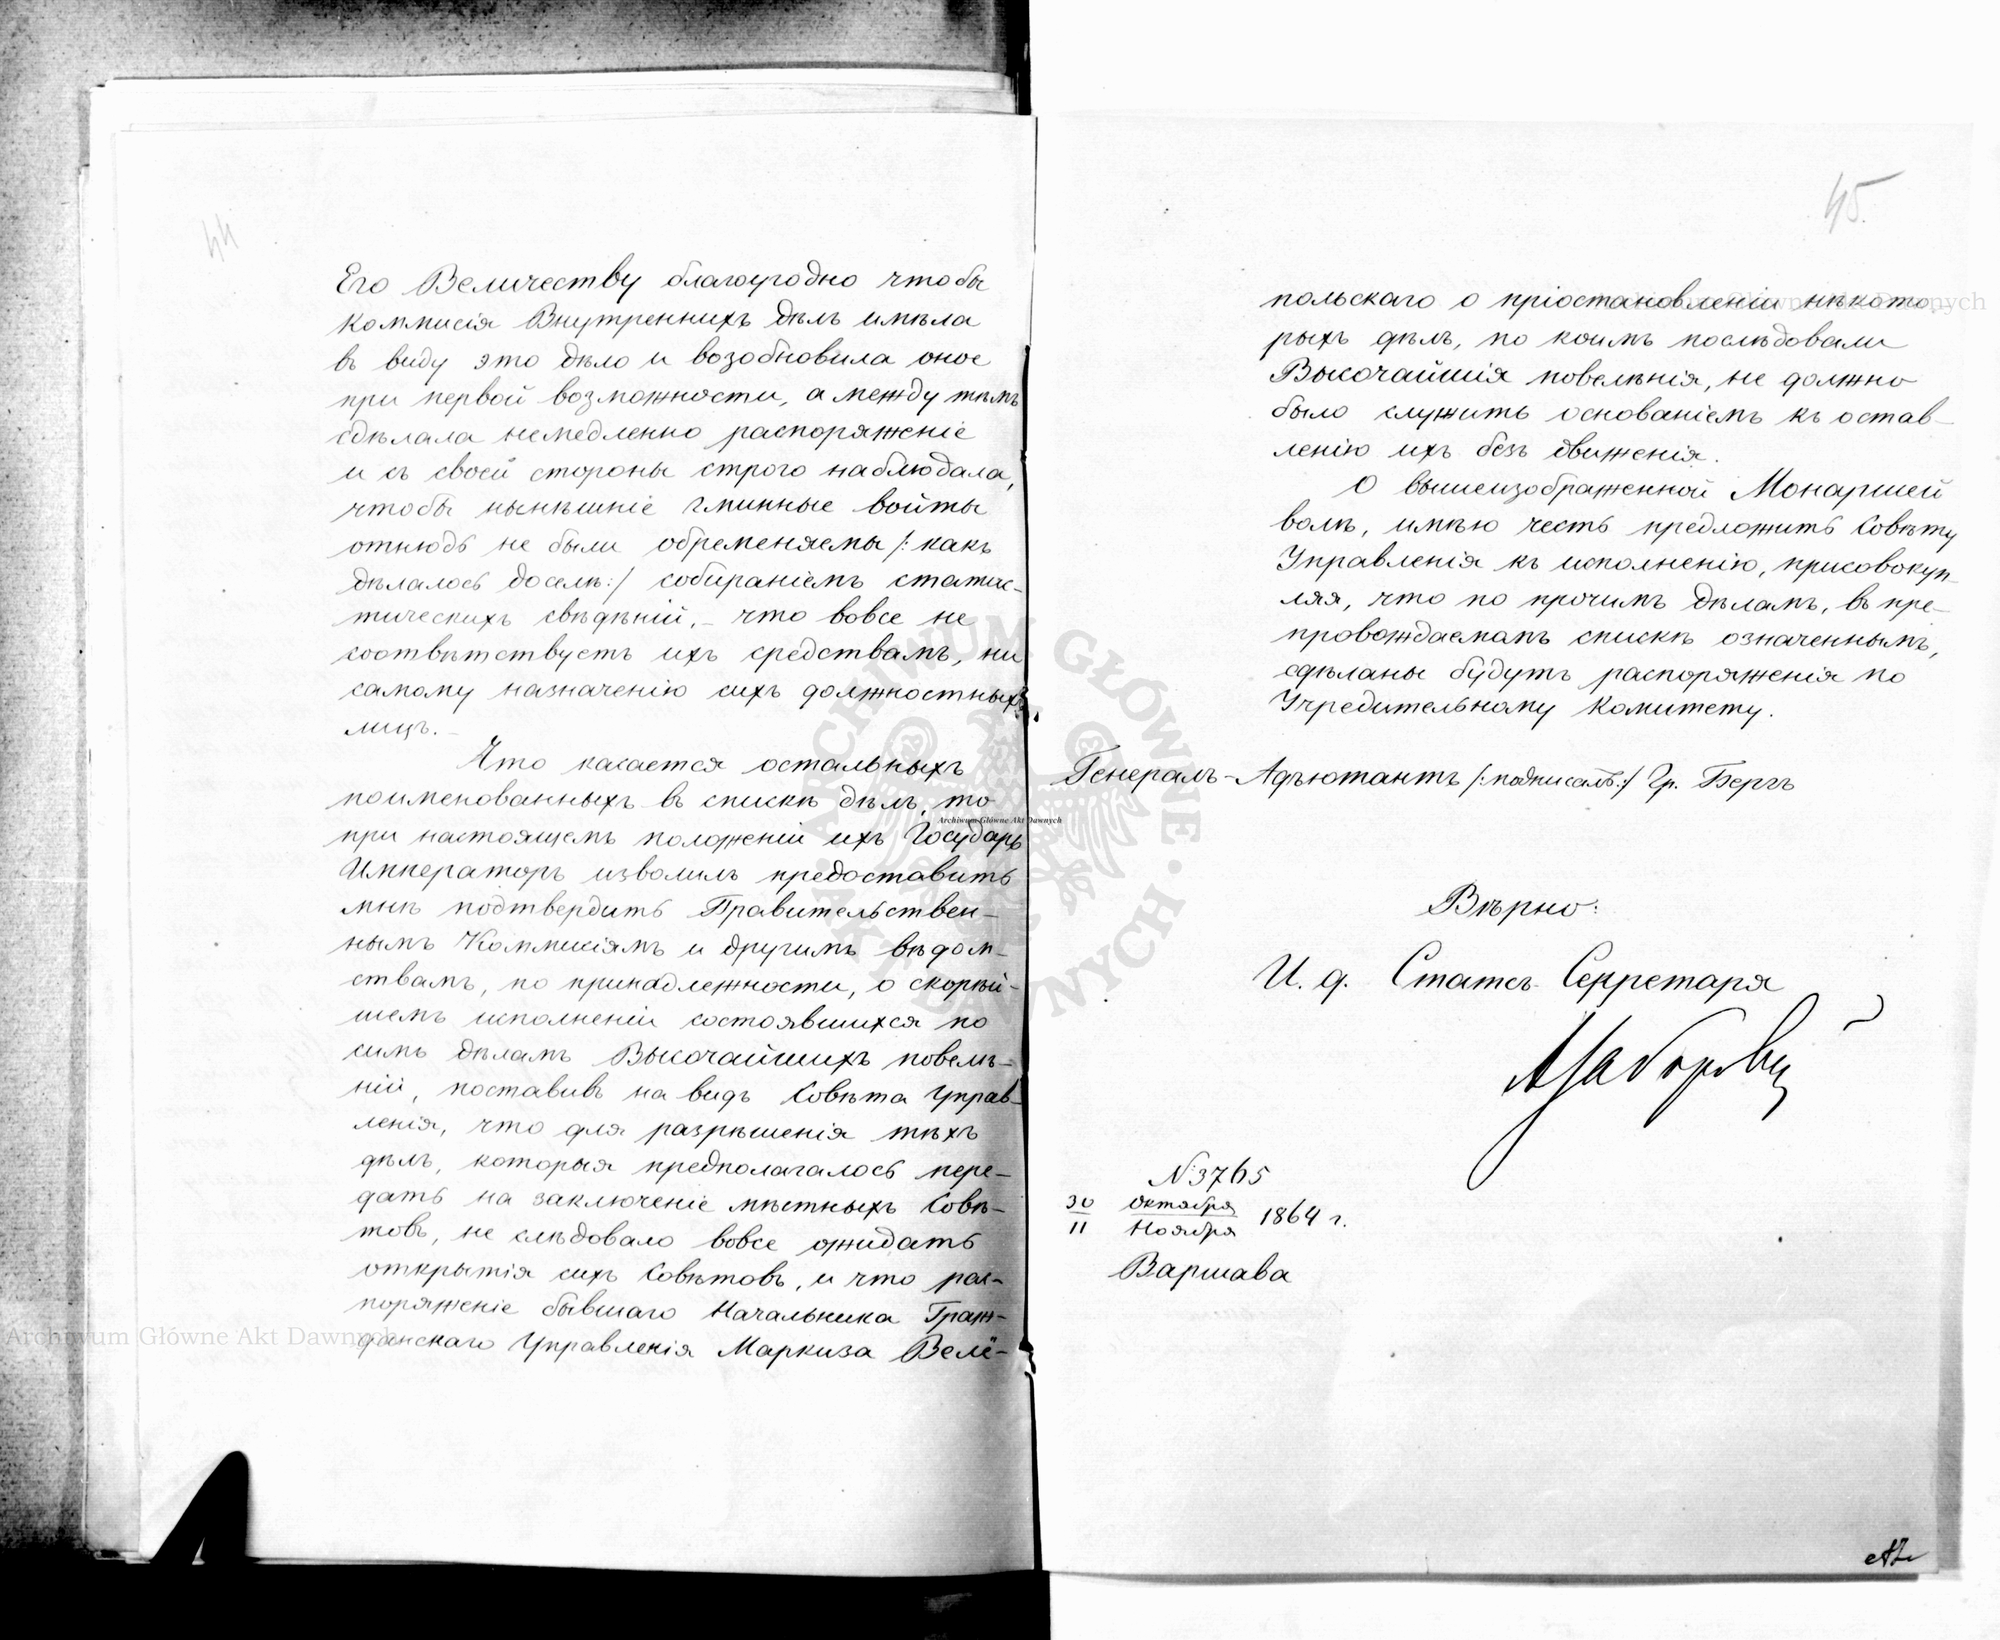 44
Его Величеству благоугодно чтобы
Коммисія Внутреннихъ дѣлъ имѣла
въ виду это дѣло и возобновила оное
при первой возможности, а между тѣмъ
сдѣлала немедленно распоряженіе
и съ своей стороны строго наблюдала,
чтобы нынѣшніе гминные войты
отнюдь не были обременяемы /: какъ
дѣлалось доселѣ:/ собираніемъ статис-
тическихъ свѣдѣній, - что вовсе не
соотвѣтствуетъ ихъ средствамъ, ни
самому назначенію сихъ должностныхъ
лицъ. -
Что касается остальныхъ
поименованныхъ въ спискѣ дѣлъ, то
при настоящемъ положеніи ихъ Государь
Императоръ изволилъ предоставить
мнѣ подтвердить Правительствен-
нымъ Коммисіямъ и другимъ вѣдом-
ствамъ, по принадлежности, о скорѣй-
шемъ исполненіи состоявшихся по
симъ дѣламъ Высочайшихъ повелѣ-
ній, поставивъ на видъ Совѣта Управ-
ленія, что для разрѣшенія тѣхъ
дѣлъ, которыя предполагалось пере-
дать на заключеніе мѣстныхъ Совѣ-
товъ, не слѣдовало вовсе ожидать
открытія сихъ Совѣтовъ, и что рас-
поряженіе бывшаго Начальника Граж-
данскаго Управленія Маркиза Велё-
45.
польскаго о пріостановленіи нѣкото-
рыхъ дѣлъ, по коимъ послѣдовали
Высочайшія повелѣнія, не должно
было служить основаніемъ къ остав-
ленію ихъ безъ движенія.
О вышеизображенной Монаршей
волѣ, имѣю честь предложить Совѣту
Управленія къ исполненію, присовокуп-
ляя, что по прочимъ дѣламъ, въ пре-
провождаемомъ спискѣ означеннымъ,
сдѣланы будутъ распоряженія по
Учредительному Комитету.
Генералъ-Адъютантъ /:подписалъ:/ Гр. Бергъ
Вѣрно:
И. д. Статсъ-Секретаря
№ 3765
30 Октября
11 Ноября 1864 г.
Варшава
Archiwum Główne Akt Dawnych
Archiwum Główne Akt Dawnych
ARCHIWUM GŁÓWNE AKT DAWNYCH